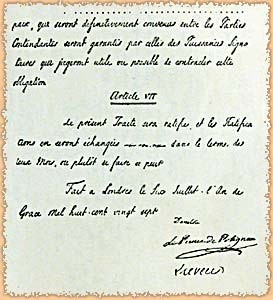 paix, qui seront définitivement convenues entre les Parties
Contendantes seront garantis par celles des Puissances Signa
taires qui jugeront utile ou possible de contracter cette
obligation
Article VII
Le présent Traité sera ratifié, et les Ratifica
tions en seront échangées dans le terme des
deux Mois, ou plutôt si faire se peut
Fait à Londres le Six Juillet, l'An de
Grace Mil huit-cent vingt sept
Le Prince de Polignac
Lieven